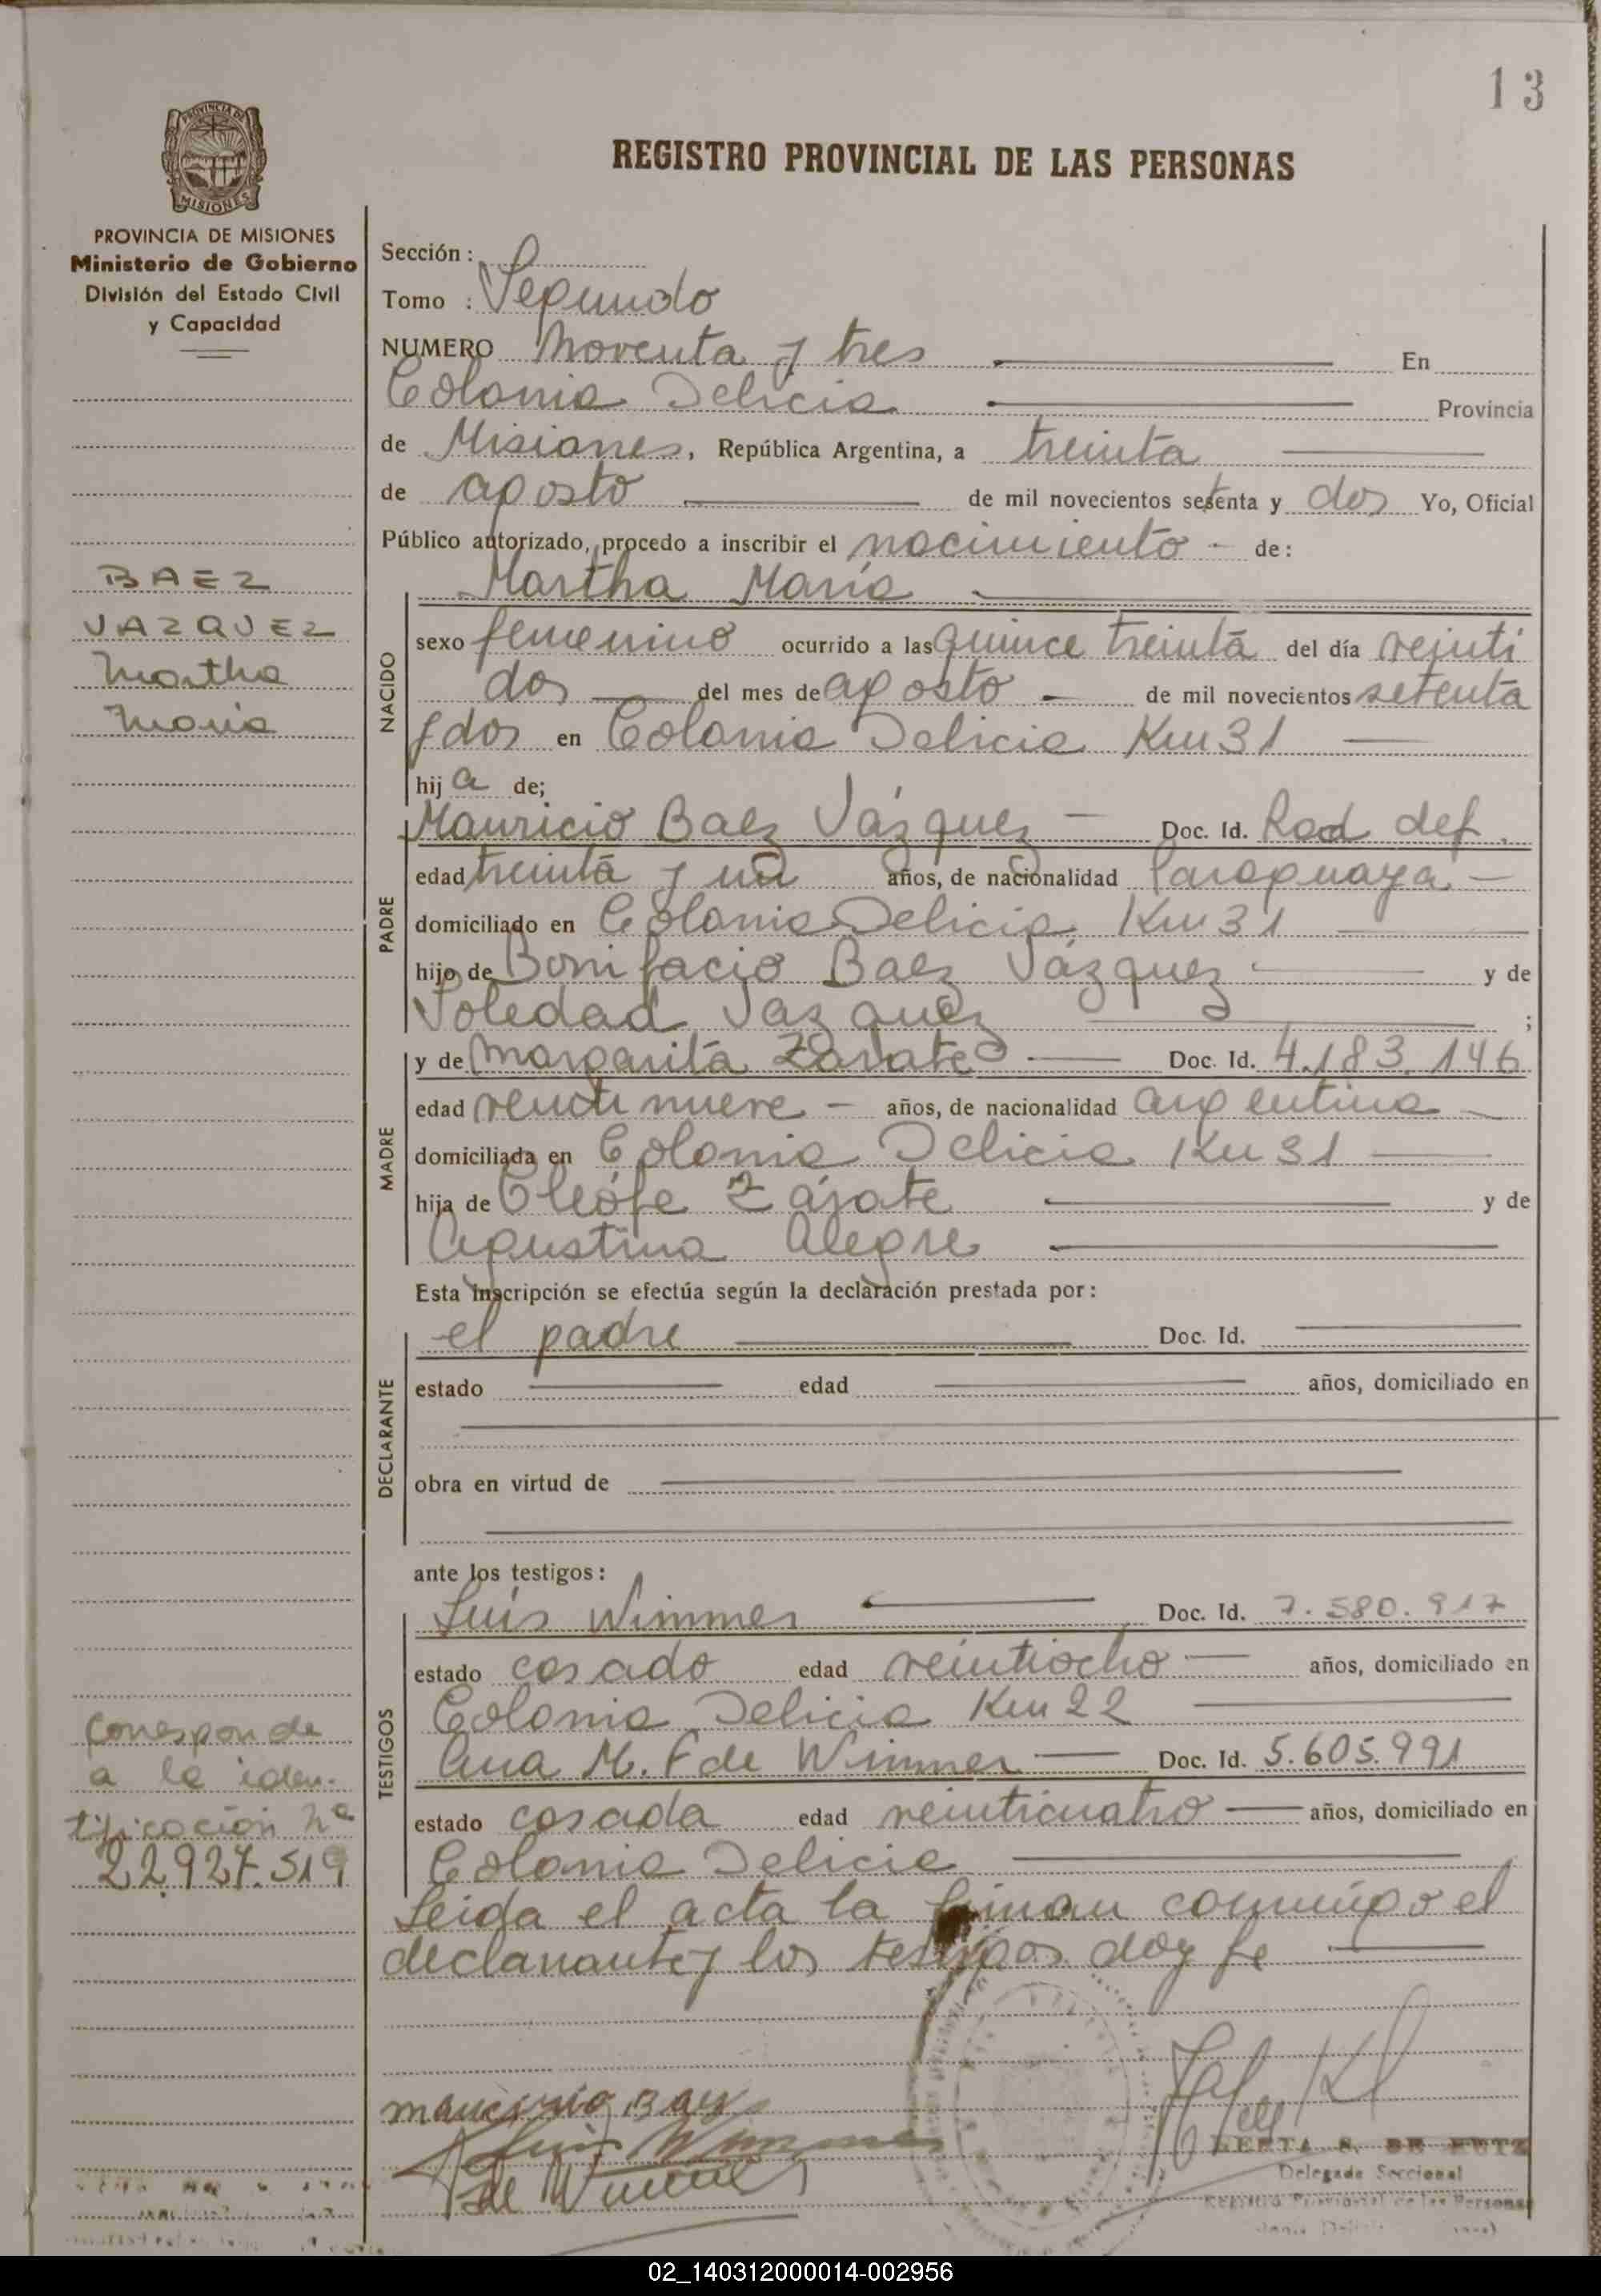 13
PROVINCIA DE
MISIONES
REGISTRO PROVINCIAL DE LAS PERSONAS
PROVINCIA DE MISIONES
Ministerio de Gobierno
División del Estado Civil
y Capacidad
BAEZ
VAZQUEZ
Martha
María
Corresponde
a la iden-
tificación nº
22.927.519
Sección:
Tomo : Segundo
NUMERO Noventa y tres En
Colonia Delicia Provincia
de Misiones, República Argentina, a treinta
de agosto de mil novecientos setenta y dos Yo, Oficial
Público autorizado, procedo a inscribir el nacimiento - de:
Martha María
NACIDO
sexo femenino ocurrido a las quince treinta del día veinti
dos del mes de agosto de mil novecientos setenta
y dos en Colonia Delicia Km 31
hija de;
PADRE
Mauricio Baez Vázquez Doc. Id. Rad def.
edad treinta y un años, de nacionalidad Paraguaya
domiciliado en Colonia Delicia, Km 31
hijo de Bonifacio Baez Vázquez y de
Soledad Vazquez ;
MADRE
y de Margarita Zarate Doc. Id. 4.183.146
edad veinti nueve años, de nacionalidad argentina
domiciliada en Colonia Delicia Km 31
hija de Cleófe Zárate y de
Agustina Alegre
Esta inscripción se efectúa según la declaración prestada por:
DECLARANTE
el padre Doc. Id.
estado edad años, domiciliado en
obra en virtud de
ante los testigos:
TESTIGOS
Luis Wimmer Doc. Id. 7.580.917
estado casado edad veintiocho años, domiciliado en
Colonia Delicia Km 22
Ana M. F de Wimmer Doc. Id. 5.605.991
estado casada edad veinticuatro años, domiciliado en
Colonia Delicia
Leida el acta la firman conmigo el
declarante y los testigos doy fe
mauricio Baez
Luis Wimmer
de Wimmer
DE
Delegada Seccional
Registro Provincial de las Personas
02_140312000014-002956